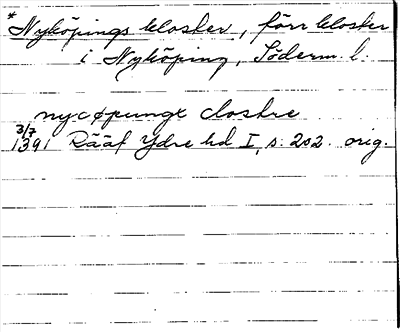 * Nyköpings kloster, förr kloster
i Nyköping, Söderm. l.
nycøpungx clostre
3/7
1391 Rääf Ydre hd I, s. 202. orig.